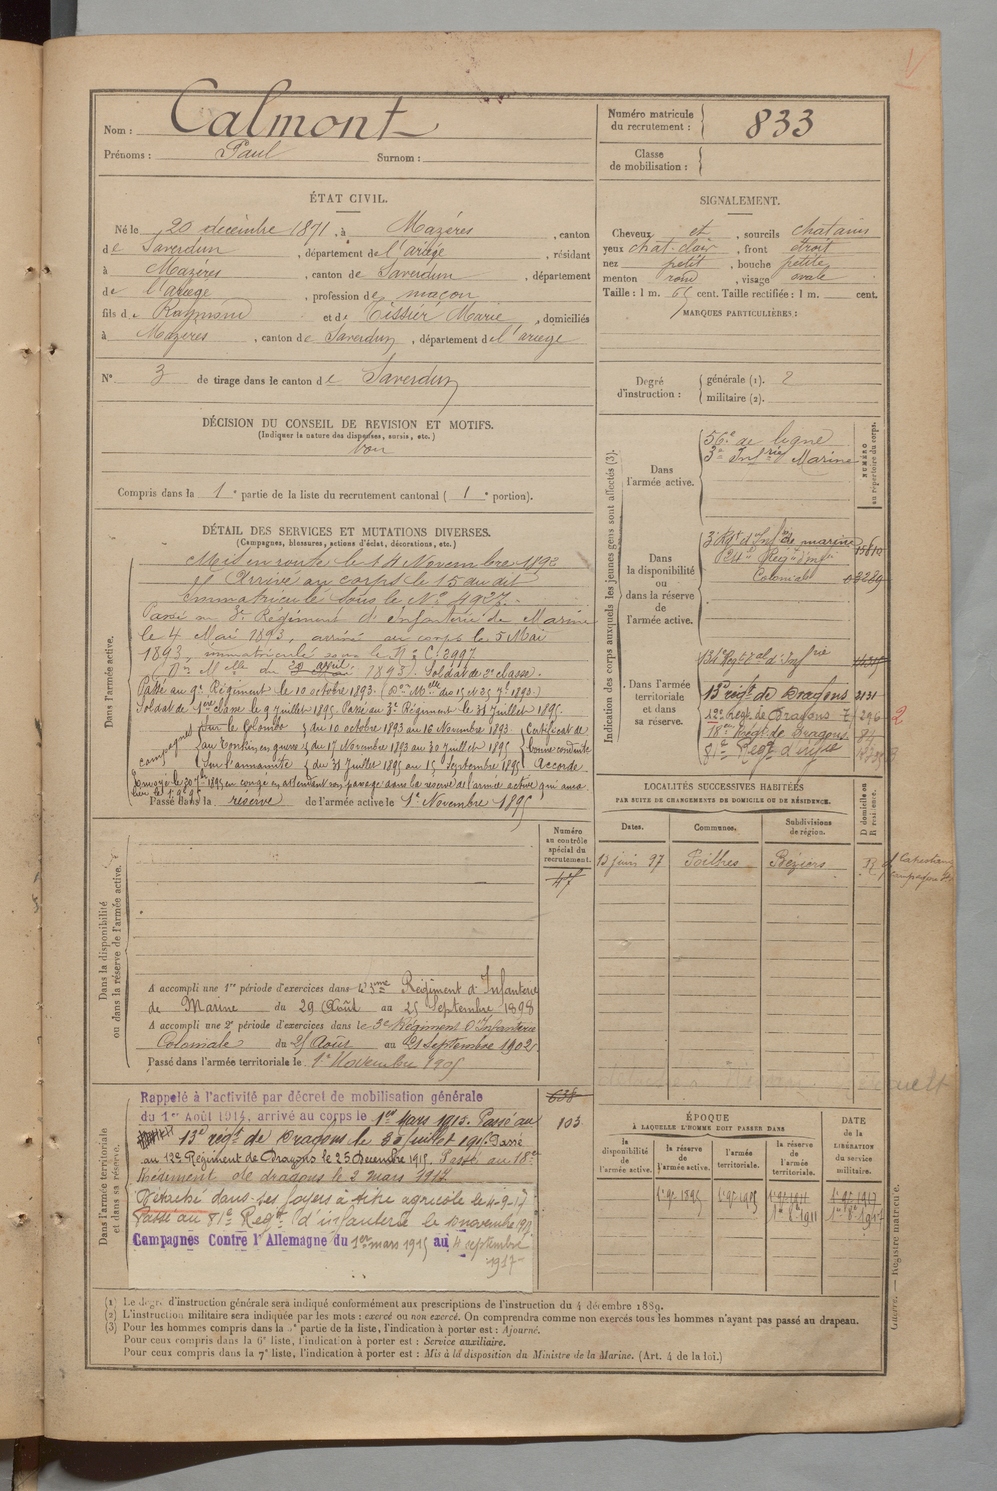 Nom : Calmont
Prénoms : Paul Surnom :
Numéro matricule du recrutement : 833
Classe de mobilisation :
ÉTAT CIVIL.
Né le 20 décembre 1871, à Mazères, canton
de Saverdun, département de l'ariège, résidant
à Mazères, canton de Saverdun, département
de l'ariège, profession de maçon
fils de Raymond et de Tissier Marie, domiciliés
à Mazères, canton de Saverdun, département de l'ariège
N° 3 de tirage dans le canton de Saverdun
SIGNALEMENT.
Cheveux et , sourcils chatains
yeux chat. clair, front étroit
nez petit, bouche petite
menton rond, visage ovale
Taille : 1 m. 65 cent. Taille rectifiée : 1 m. cent.
MARQUES PARTICULIÈRES :
Degré d'instruction : générale (1). 2
militaire (2).
DÉCISION DU CONSEIL DE REVISION ET MOTIFS.
(Indiquer la nature des dispenses, sursis, etc.)
bon
Compris dans la 1e partie de la liste du recrutement cantonal ( 1e portion).
DÉTAIL DES SERVICES ET MUTATIONS DIVERSES.
(Campagnes, blessures, actions d'éclat, décorations, etc.)
Dans l'armée active.
Mis en route le 14 Novembre 1892
Arrivé au corps le 15 au dit
Immatriculé sous le N° 4927.
Passé au 3e Régiment d'infanterie de Marine
le 4 Mai 1893, arrivé au corps le 5 Mai
1893, immatriculé sous le N° C. 3997
(Don Melle du 20 avril 1893). Soldat de 2e classe.
Passé au 9e Régiment le 10 octobre 1893.
Soldat de 1ère classe le 9 juillet 1895. Passé au 3e Régiment le 31 Juillet 1895.
Campagnes
Sur le Colombo du 10 octobre 1893 au 16 Novembre 1893
au Tonkin, en guerre du 17 Novembre 1893 au 30 Juillet 1895
Sur l'annamite du 31 Juillet 1895 au 15 Septembre 1895
Certificat de bonne conduite Accordé
Envoyé le 30 7bre 1895 en congé en attendant son passage dans la réserve de l'armée active qui aura
lieu le
Passé dans la réserve de l'armée active le 1e Novembre 1895
Indication des corps auxquels les jeunes gens sont affectés (3).
NUMÉRO au répertoire du corps.
Dans l'armée active.
56e de ligne
3e Infrie Marine
Dans la disponibilité ou dans la réserve de l'armée active.
3e Rgt d'Infie de marine
Régt d'Infie
Coloniale
Dans l'armée territoriale et dans sa réserve.
134e Regt tal d'Infrie
13e régt de Dragons 2131
12e Regt de Dragons 7 296 2
18e Régt de Dragons
81e Regt d'infie
LOCALITÉS SUCCESSIVES HABITÉES
PAR SUITE DE CHANGEMENTS DE DOMICILE OU DE RÉSIDENCE.
Dates. Communes. Subdivisions de région. D domicile ou R résidence.
13 juin 97 Poilhes Béziers R
Dans la disponibilité ou dans la réserve de l'armée active.
Numéro au contrôle spécial du recrutement.
47
A accompli une 1re période d'exercices dans le 3me Régiment d'Infanterie
de Marine du 29 Août au 25 Septembre 1898
A accompli une 2e période d'exercices dans le 3e Régiment d'Infanterie
Coloniale du 25 Août au 21 Septembre 1902.
Passé dans l'armée territoriale le 1e Novembre 1905
Dans l'armée territoriale et dans sa réserve.
638
103
Rappelé à l'activité par décret de mobilisation générale
du 1er Août 1914, arrivé au corps le 1er Mars 1915. Passé au
13e régt de Dragons le 30 juillet 1915. Passé
au 12e Régiment de Dragons le 25 Décembre 1915. Passé au 18e
Régiment de dragons le 2 mars 1917
Détaché dans ses foyers à titre agricole le 4-9-17
Passé au 81e Regt d'infanterie le 10 novembre 1917
Campagnes Contre l'Allemagne du 1er mars 1915 au 4 septembre
1917
ÉPOQUE
A LAQUELLE L'HOMME DOIT PASSER DANS
la disponibilité de l'armée active. la réserve de l'armée active. l'armée territoriale. la réserve de l'armée territoriale.
DATE de la LIBÉRATION du service militaire.
1e 9e 1895 1e 9e 1905 1e 9e 1911 1e 9e 1917
1e 8e 1911 1e 8e 1917
(1) Le degré d'instruction générale sera indiqué conformément aux prescriptions de l'instruction du 4 décembre 1889.
(2) L'instruction militaire sera indiquée par les mots : exercé ou non exercé. On comprendra comme non exercés tous les hommes n'ayant pas passé au drapeau.
(3) Pour les hommes compris dans la partie de la liste, l'indication à porter est : Ajourné.
Pour ceux compris dans la 6e liste, l'indication à porter est : Service auxiliaire.
Pour ceux compris dans la 7e liste, l'indication à porter est : Mis à la disposition du Ministre de la Marine. (Art. 4 de la loi.)
Registre matricule.